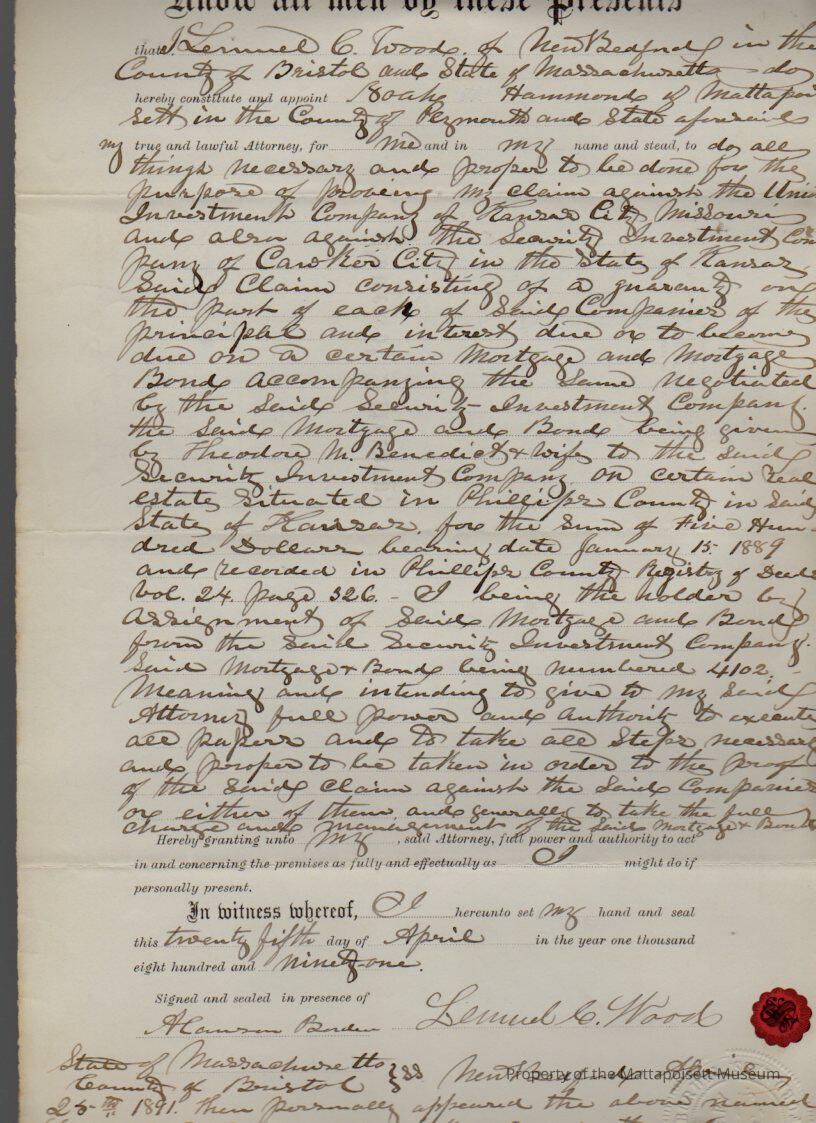 Know all men by these Presents
that I Lemuel C. Wood, of New Bedford in the
County of Bristol and State of Massachusetts do
hereby constitute and appoint Noah Hammond of Mattapoi
sett in the County of Plymouth and State aforesaid
my true and lawful Attorney, for me and in my name and stead, to do all
things necessary and proper to be done for the
purpose of proving my claim against the Unio
Investment Company of Kansas City Missouri
and also against the Security Investment Com
pany of Cawker City in the State of Kansas
Said Claim consisting of a guaranty on
the part of each of Said Companies of the
principal and interest due or to become
due on a certain Mortgage and Mortgage
Bond accompanying the same negotiated
by the Said Security Investment Company.
the Said Mortgage and Bond being given
by Theodore M. Benedict & wife to the Said
Security Investment Company on certain real
estate situated in Phillips County in Said
State of Kansas, for the sum of Five Hun-
dred Dollars bearing date January 15 1889
and recorded in Phillips County Registry of Deeds
Vol. 24. page 326 - I being the holder by
assignment of Said Mortgage and Bond
from the Said Security Investment Company.
Said Mortgage & Bond being numbered 4102. -
Meaning and intending to give to my Said
Attorney full power and authority to execute
all papers and to take all steps necessary
and proper to be taken in order to the proof
of the Said Claim against the Said Companies
or either of them and generally to take the full
charge and management of the Said Mortgage & Bond
Hereby granting unto my, said Attorney, full power and authority to act
in and concerning the premises as fully and effectually as I might do if
personally present.
In witness whereof, I hereunto set my hand and seal
this twenty fifth day of April in the year one thousand
eight hundred and ninety-one.
Signed and sealed in presence of
Alanson Borden Lemuel C. Wood
State of Massachusetts
County of Bristol } ss New Bedford April
25th 1891. Then personally appeared the above named
Property of the Mattapoisett Museum